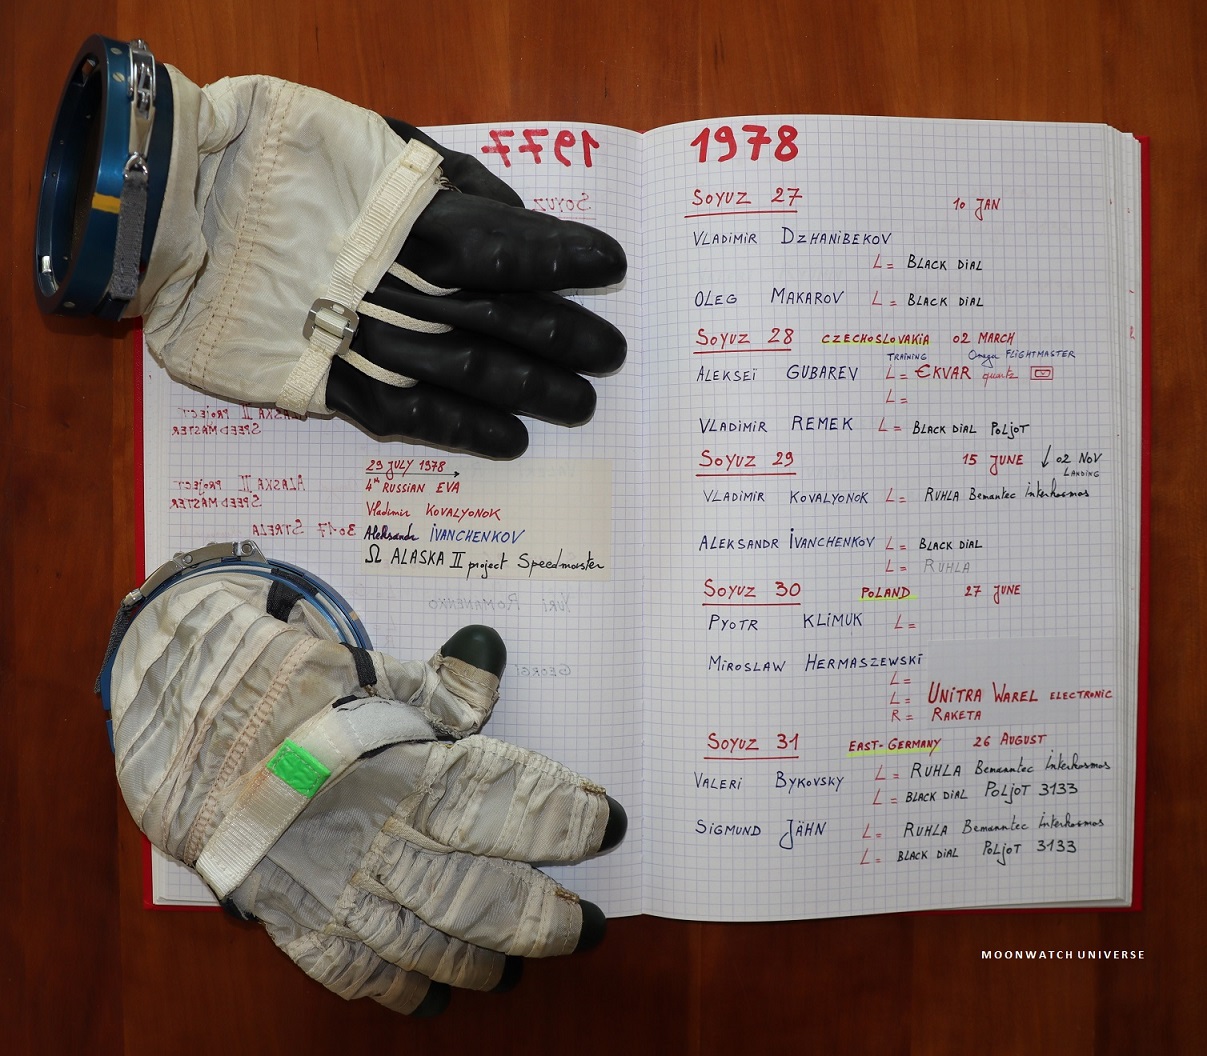 1977
SOYUZ
ALASKA II PROJECT
SPEEDMASTER
ALASKA II PROJECT
SPEEDMASTER
STRELA 3017
29 JULY 1978
4th RUSSIAN EVA
Vladimir KOVALYONOK
Aleksandr IVANCHENKOV
Ω ALASKA II project Speedmaster
YURI ROMANENKO
GEORGI
1978
SOYUZ 27 10 JAN
VLADIMIR DZHANIBEKOV
L = BLACK DIAL
OLEG MAKAROV L = BLACK DIAL
SOYUZ 28 CZECHOSLOVAKIA 02 MARCH
TRAINING Omega FLIGHTMASTER
ALEKSEÏ GUBAREV L = €KVAR quartz
L =
VLADIMIR REMEK L = BLACK DIAL POLJOT
SOYUZ 29 15 JUNE ↓ 02 NOV
LANDING
VLADIMIR KOVALYONOK L = RUHLA Bemanntec İnterkosmos
ALEKSANDR İVANCHENKOV L = BLACK DIAL
L = RUHLA
SOYUZ 30 POLAND 27 JUNE
PYOTR KLIMUK L =
MIROSLAW HERMASZEWSKI
L =
L = UNITRA WAREL ELECTRONIC
R = RAKETA
SOYUZ 31 EAST-GERMANY 26 AUGUST
VALERI BYKOVSKY L = RUHLA Bemanntec İnterkosmos
L = BLACK DIAL POLJOT 3133
SIGMUND JÄHN L = RUHLA Bemanntec İnterkosmos
L = BLACK DIAL POLJOT 3133
MOONWATCH UNIVERSE